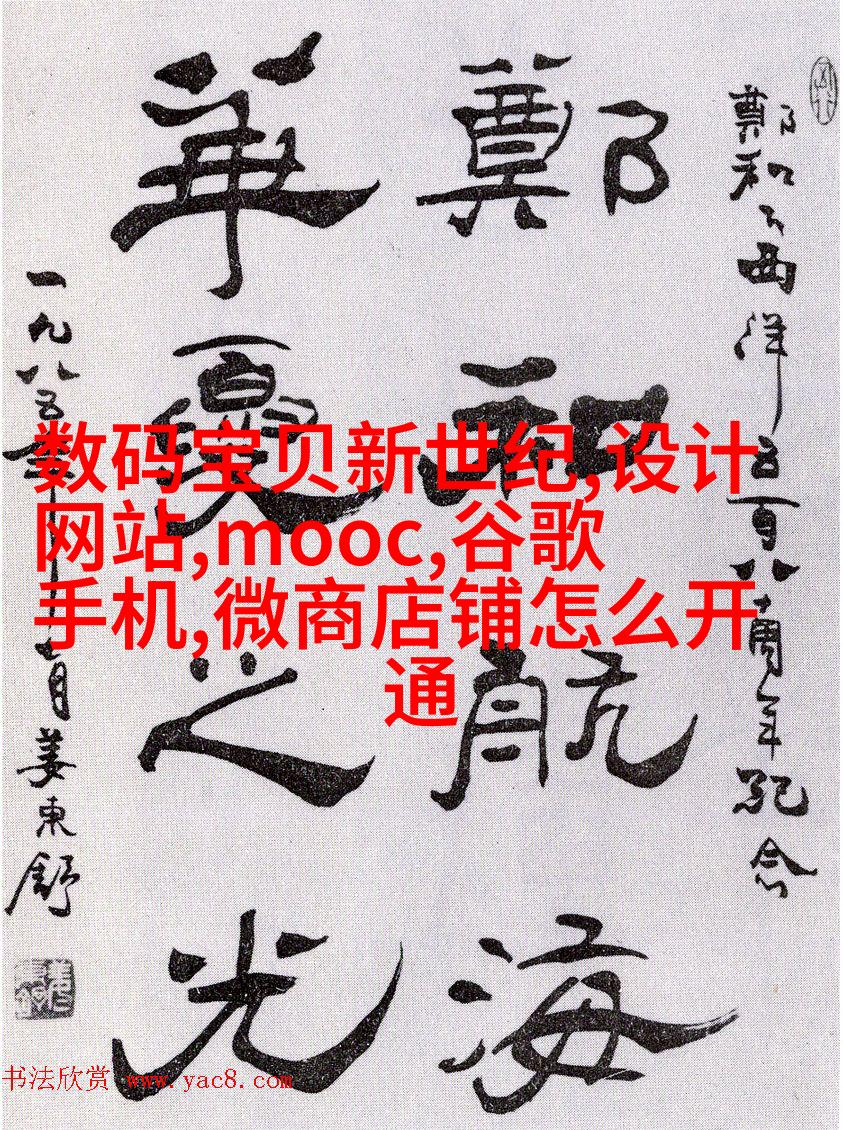 鄭和下西洋五百八十周年紀念
鄭和航海
華夏之光
一九八五年七月姜東舒
数码宝贝新世纪,设计
网站,mooc,谷歌
手机,微商店铺怎么开
通
书法欣赏 www.yac8.com